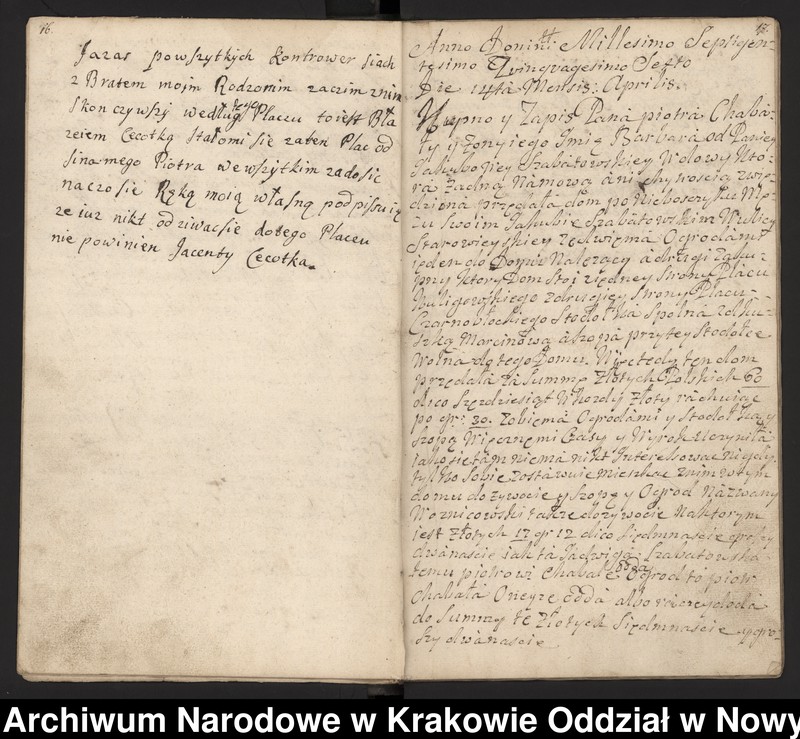 16.
Jazas powszytkych Kontrower siach
z Bratem moim Rodzonim zaczim znim
skonczywszÿ według tego Placu to iest Bła
zeiem Cecotką Stałomi sie zaten Plac od
sinamego Piotra wewszytkim zadosic
naczo sie Ręką moią własną podpissuię
ze iuz nikt odziwac sie dotego Placeu
nie powinien Jacenty Cecotka.
17.
Anno Domini Millesimo Septigen-
tesimo Qvinqvagesimo Sexto
Die Mensis: Aprilis.
Kupno y Zapis Pana piotra Chaba-
ły y zony iego Imię Barbara od Paniey
Szabatowskiey Wdowy Któ-
ra zadną Namową ani chytroscią zwie-
dziona przedała dom po Nieboszyku Mę-
zu Swoim Jakubie Szabatowskim Wulicy
Starowieyskiey Zedwięma Ogrodami
ieden do Domu Nalezacy a drugi Zaku-
pny Ktory Dom Stoi ziedney Strony Placu
Kuligowskiego zdrugiey Strony Placu
Czarnobłockiego Stodołka Spolna zolku-
szką Marcinową a szopa przytey Stodołce
Wolna dotego Domu. Więc tedy ten dom
przedała za Summę Złotych Polskich 60
dico Szescdziesiąt Wkozdy Złoty rachuiąc
po gr: 30. Zobiema Ogrodami y Stodołką y
Szopą Wiecznemi Czasy y Wyrok Uczyniła
iako sietam niema nikt Interessowac nigdy.
tylko Sobie zostawuie mieszkac znim wtym
domu do zywocie y Szopę y Ogrod Nazwany
Woznicowski takze dozywocie Naktorym
iest Złotych 17 gr 12 dico Siedmnascie groszy
dwanascie iak ta Jadwiga Szabatowska
temu piotrowi Chabale odda Ogrod to piotr
Chabała Oneyze odda albo
do Summy te Złotych Siedmnascie y gro-
szy dwanascie
Archiwum Narodowe w Krakowie Oddział w Nowy